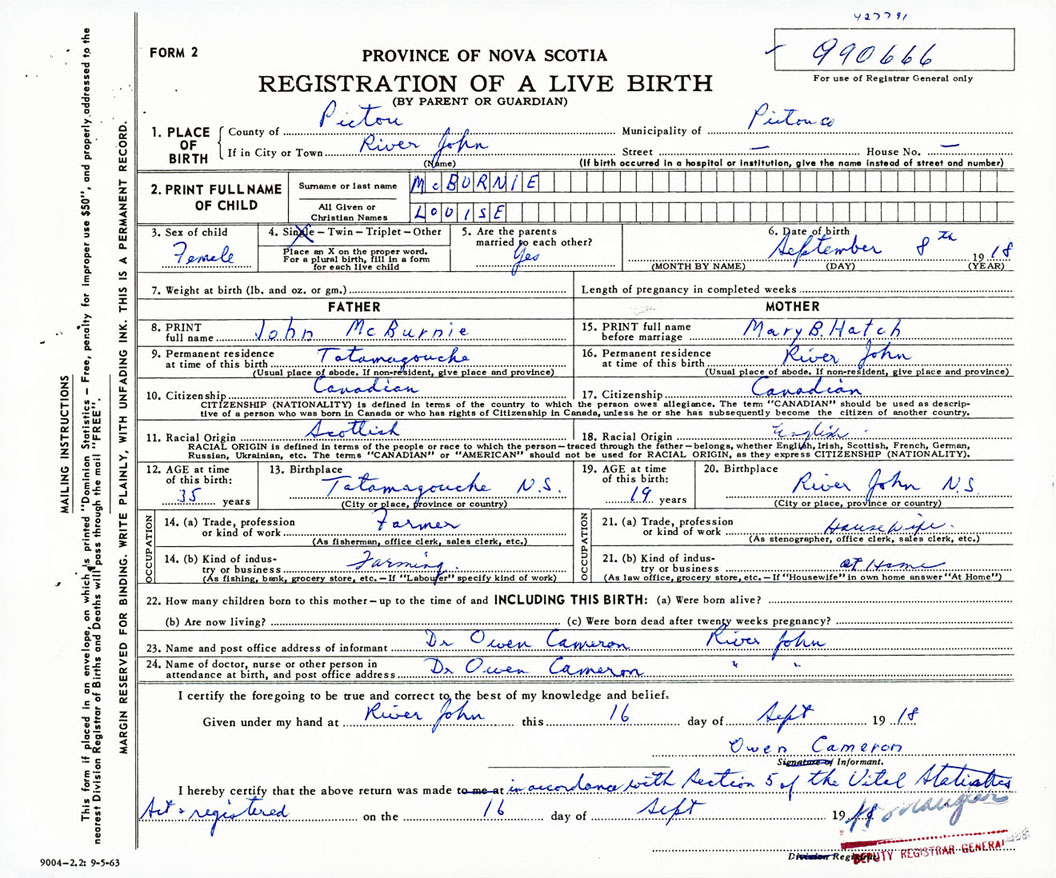 427791
FORM 2
PROVINCE OF NOVA SCOTIA
990666
REGISTRATION OF A LIVE BIRTH
For use of Registrar General only
(BY PARENT OR GUARDIAN)
1. PLACE OF BIRTH
County of Pictou Municipality of Pictou Co
If in City or Town River John Street — House No. —
(Name) (If birth occurred in a hospital or institution, give the name instead of street and number)
2. PRINT FULL NAME OF CHILD
Surname or last name McBURNIE
All Given or Christian Names LOUISE
3. Sex of child Female
4. Single – Twin – Triplet – Other
Place an X on the proper word.
For a plural birth, fill in a form
for each live child
5. Are the parents married to each other? Yes
6. Date of birth September 8th 1918
(MONTH BY NAME) (DAY) (YEAR)
7. Weight at birth (lb. and oz. or gm.) Length of pregnancy in completed weeks
FATHER MOTHER
8. PRINT full name John McBurnie
15. PRINT full name before marriage Mary B. Hatch
9. Permanent residence at time of this birth Tatamagouche
16. Permanent residence at time of this birth River John
(Usual place of abode. If non-resident, give place and province) (Usual place of abode. If non-resident, give place and province)
10. Citizenship Canadian 17. Citizenship Canadian
CITIZENSHIP (NATIONALITY) is defined in terms of the country to which the person owes allegiance. The term "CANADIAN" should be used as descrip-
tive of a person who was born in Canada or who has rights of Citizenship in Canada, unless he or she has subsequently become the citizen of another country.
11. Racial Origin Scottish 18. Racial Origin English
RACIAL ORIGIN is defined in terms of the people or race to which the person – traced through the father – belongs, whether English, Irish, Scottish, French, German,
Russian, Ukrainian, etc. The terms "CANADIAN" or "AMERICAN" should not be used for RACIAL ORIGIN, as they express CITIZENSHIP (NATIONALITY).
12. AGE at time of this birth: 35 years
13. Birthplace Tatamagouche N.S.
(City or place, province or country)
19. AGE at time of this birth: 19 years
20. Birthplace River John N.S
(City or place, province or country)
OCCUPATION
14. (a) Trade, profession or kind of work Farmer
(As fisherman, office clerk, sales clerk, etc.)
14. (b) Kind of indus- try or business Farming
(As fishing, bank, grocery store, etc. – If "Labourer" specify kind of work)
OCCUPATION
21. (a) Trade, profession or kind of work Housewife
(As stenographer, office clerk, sales clerk, etc.)
21. (b) Kind of indus- try or business at Home
(As law office, grocery store, etc. – If "Housewife" in own home answer "At Home")
22. How many children born to this mother – up to the time of and INCLUDING THIS BIRTH: (a) Were born alive?
(b) Are now living? (c) Were born dead after twenty weeks pregnancy?
23. Name and post office address of informant Dr Owen Cameron River John
24. Name of doctor, nurse or other person in
attendance at birth, and post office address Dr Owen Cameron " "
I certify the foregoing to be true and correct to the best of my knowledge and belief.
Given under my hand at River John this 16 day of Sept 1918
Owen Cameron
Signature of Informant.
I hereby certify that the above return was made to me at in accordance with Section 5 of the Vital Statistics
Act & registered on the 16 day of Sept 1918
DEPUTY REGISTRAR GENERAL
Division Registrar.
MAILING INSTRUCTIONS
This form if placed in an envelope, on which is printed "Dominion Statistics – Free, penalty for improper use $50", and properly addressed to the
nearest Division Registrar of Births and Deaths will pass through the mail "FREE".
MARGIN RESERVED FOR BINDING. WRITE PLAINLY, WITH UNFADING INK. THIS IS A PERMANENT RECORD.
9004–2,2: 9-5-63